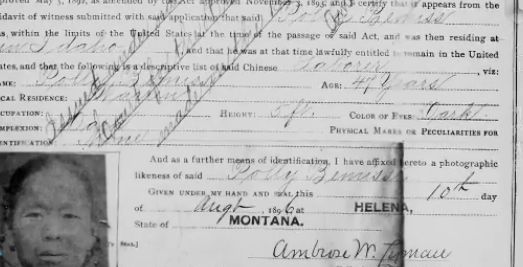 proved May 5, 1892, as amended by this Act approved November 3, 1893, I certify that it appears from the
fidavit of witness submitted with said application that said Polly Bemiss
as, within the limits of the United States at the time of the passage of said Act, and was then residing at
Idaho, and that he was at that time lawfully entitled to remain in the United
tates, and that the following is a descriptive list of said Chinese Laborer, viz:
NAME: Polly Bemiss AGE: 47 Years
CAL RESIDENCE: Warren
CUPATION: HEIGHT: 5 ft. COLOR OF EYES: Dark
MPLEXION: PHYSICAL MARKS OR PECULIARITIES FOR
ENTIFICATION: None
And as a further means of identification, I have affixed hereto a photographic
likeness of said Polly Bemiss
GIVEN UNDER MY HAND AND SEAL this 10th day
of Augt 1896 at HELENA,
State of MONTANA.
SEAL.]
Ambrose W. Lyman